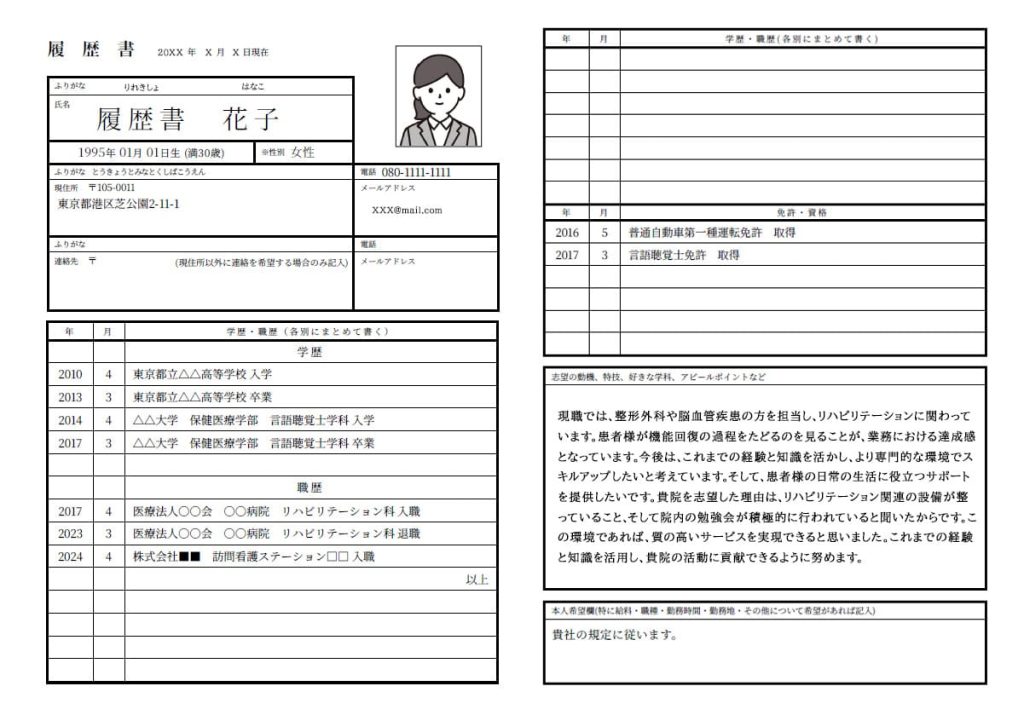 履歴書 20XX 年 X 月 X 日現在
ふりがな りれきしょ はなこ
氏名
履歴書 花子
1995年 01月 01日生 (満30歳) ※性別 女性
ふりがな とうきょうとみなとくしばこうえん
電話 080-1111-1111
現住所 〒105-0011
東京都港区芝公園2-11-1
メールアドレス
XXX@mail.com
ふりがな
電話
連絡先 〒 (現住所以外に連絡を希望する場合のみ記入)
メールアドレス
年 月 学歴・職歴（各別にまとめて書く）
学歴
2010 4 東京都立△△高等学校 入学
2013 3 東京都立△△高等学校 卒業
2014 4 △△大学 保健医療学部 言語聴覚士学科 入学
2017 3 △△大学 保健医療学部 言語聴覚士学科 卒業
職歴
2017 4 医療法人〇〇会 〇〇病院 リハビリテーション科 入職
2023 3 医療法人〇〇会 〇〇病院 リハビリテーション科 退職
2024 4 株式会社■■ 訪問看護ステーション□□ 入職
以上
年 月 学歴・職歴(各別にまとめて書く)
年 月 免許・資格
2016 5 普通自動車第一種運転免許 取得
2017 3 言語聴覚士免許 取得
志望の動機、特技、好きな学科、アピールポイントなど
現職では、整形外科や脳血管疾患の方を担当し、リハビリテーションに関わって
います。患者様が機能回復の過程をたどるのを見ることが、業務における達成感
となっています。今後は、これまでの経験と知識を活かし、より専門的な環境でス
キルアップしたいと考えています。そして、患者様の日常の生活に役立つサポート
を提供したいです。貴院を志望した理由は、リハビリテーション関連の設備が整
っていること、そして院内の勉強会が積極的に行われていると聞いたからです。こ
の環境であれば、質の高いサービスを実現できると思いました。これまでの経験
と知識を活用し、貴院の活動に貢献できるように努めます。
本人希望欄(特に給料・職種・勤務時間・勤務地・その他について希望があれば記入)
貴社の規定に従います。